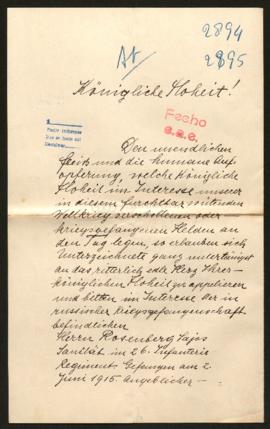 2894
2895
Königliche Hoheit!
Fecho
a.a.e.
Den unendlichen
Fleiß und die humane Auf-
opferung, welche Königliche
Hoheit im Interesse unserer
in diesem furchtbar wütenden
Weltkrieg verschollenen oder
kriegsgefangenen Helden an
den Tag legen, so erlauben sich
Unterzeichnete ganz untertänigst
an das ritterlich edle Herz Ihrer
königlichen Hoheit zu appelieren
und bitten im Interesse der in
russischer Kriegsgefangenschaft
befindlichen
Herrn Rosenberg Lajos
Sanität im 26. Infanterie
Regiments Gefangen am 2
Juni 1915. Angeblicher –